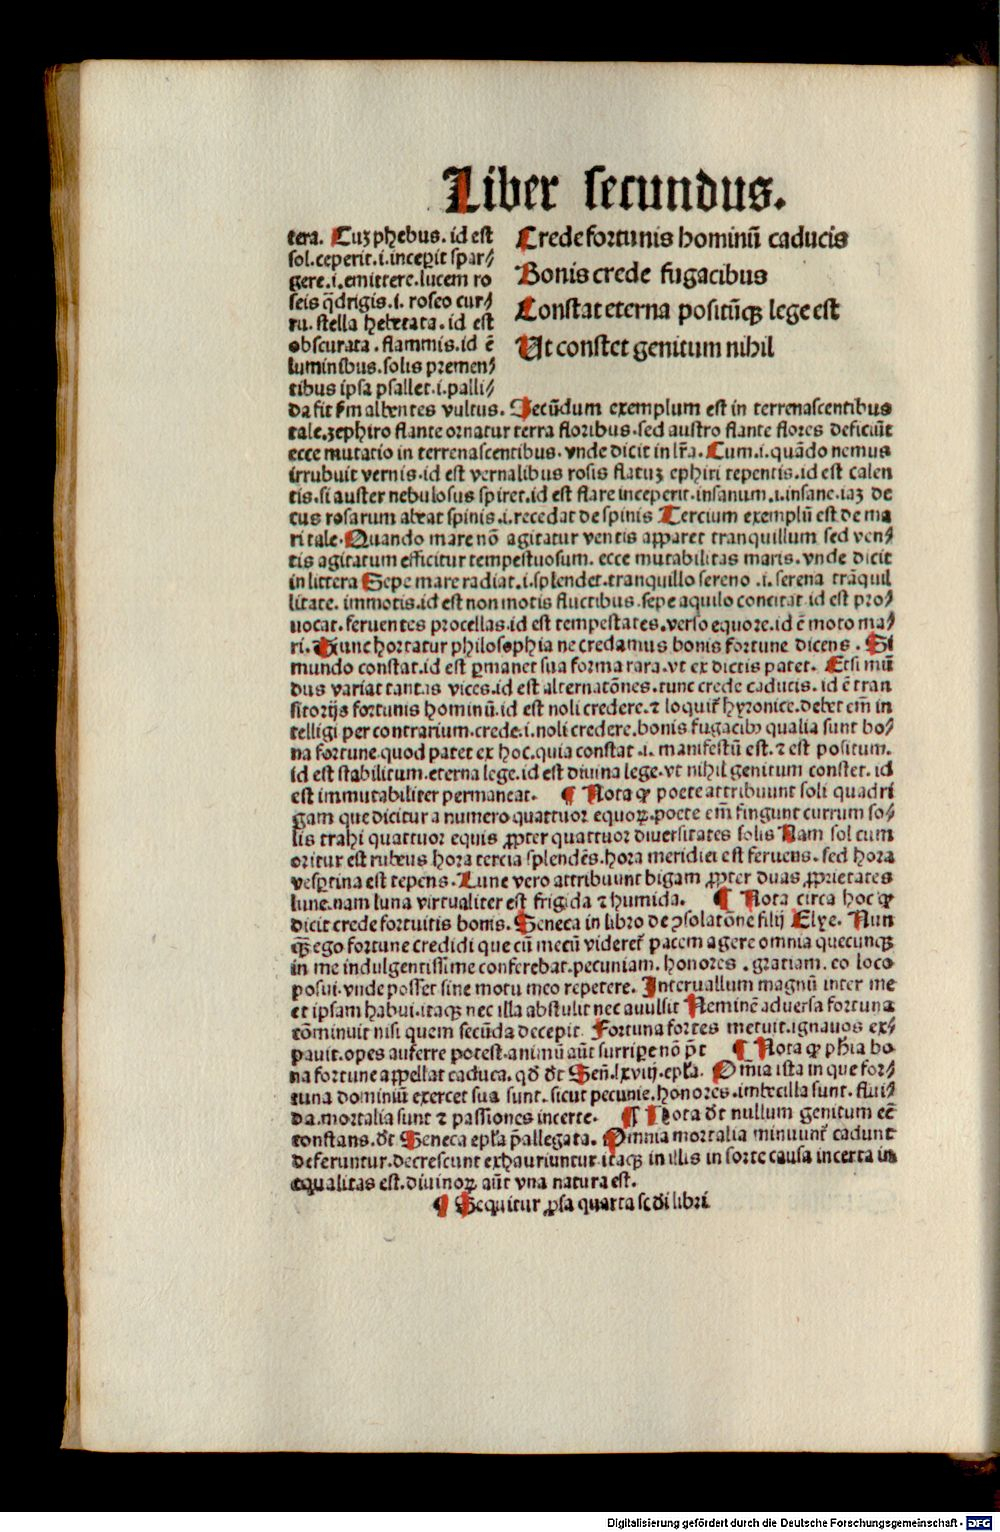 Liber secundus.
tera. Cuʒ phebus. id est
sol. ceperit. i. inceperit spar⸗
gere. i. emittere. lucem ro
seis q̄drigis. i. roseo cur⸗
ru. stella hebetata. id est
obscurata. flammis. id ē
luminibus. solis premen⸗
tibus ipsa psallet. i. palli⸗
Crede fortunis hominū caducis
Bonis crede fugacibus
Constat eterna positūqꝫ lege est
Ut constet genitum nihil
da fit ẜm albentes vultus. Secūdum exemplum est in terrenascentibus
tale. zephiro flante ornatur terra floribus. sed austro flante flores deficiūt
ecce mutatio in terrenascentibus. vnde dicit in lr̄a. Cum. i. quādo nemus
irrubuit vernis. id est vernalibus rosis flatuʒ ephiri tepentis. id est calen
tis. si auster nebulosus spiret. id est flare inceperit. insanum. i. insane. iaʒ de
cus rosarum abeat spinis. i. recedat de spinis Tercium exemplū est de ma
ri tale. Quando mare nō agitatur ventis apparet tranquillum sed ven⸗
tis agitatum efficitur tempestuosum. ecce mutabilitas maris. vnde dicit
in littera Sepe mare radiat. i. splendet. tranquillo sereno .i. serena trāquil
litate. immotis. id est non motis fluctibus. sepe aquilo concitat id est pro⸗
uocat. feruentes procellas. id est tempestates. verso equore. id ē moto ma⸗
ri. Hunc hortatur philosophia ne credamus bonis fortune dicens. Si
mundo constat. id est ꝑmanet sua forma rara. vt ex dictis patet. Etsi mū
dus variat tantas vices. id est alternatōnes. tunc crede caducis. id ē tran
sitorijs fortunis hominū. id est noli credere. ⁊ loquit᷑ hyronice. debet em̄ in
telligi per contrarium. crede. i. noli credere. bonis fugacibꝫ qualia sunt bo⸗
na fortune. quod patet ex hoc. quia constat .i. manifestū est. ⁊ est positum.
id est stabilitum. eterna lege. id est diuina lege. vt nihil genitum constet. id
est immutabiliter permaneat. ¶ Nota ꝙ poete attribuunt soli quadri
gam que dicitur a numero quattuor equoꝝ. poete em̄ fingunt currum so⸗
lis trahi quattuor equis ꝓpter quattuor diuersitates solis Nam sol cum
oritur est rubeus hora tercia splendēs. hora meridiei est feruens. sed hora
vesꝑtina est tepens. Lune vero attribuunt bigam ꝓpter duas ꝓprietates
lune. nam luna virtualiter est frigida ⁊ humida. ¶ Nota circa hoc ꝙ
dicit crede fortuitis bonis. Seneca in libro de ꝯsolatōne filij Elye. Nun
qꝫ̄ ego fortune credidi que cū mecū videret᷑ pacem agere omnia quecunqꝫ
in me indulgentissime conferebat. pecuniam. honores. gratiam. eo loco
posui. vnde posset sine motu meo repetere. Interuallum magnū inter me
et ipsam habui. itaqꝫ nec illa abstulit nec auulsit Neminē aduersa fortuna
cōminuit nisi quem secūda decepit Fortuna fortes metuit. ignauos ex⸗
pauit. opes auferre potest. animū aūt surriꝑe nō pōt ¶ Nota ꝙ ph̄ia bo
na fortune appellat caduca. qď dt̄ Señ. lxviij. epl̄a. Om̄ia ista in que for⸗
tuna dominiū exercet sua sunt. sicut pecunie. honores. imbecilla sunt. flui⸗
da. mortalia sunt ⁊ passiones incerte. ¶ Nota dt̄ nullum genitum eē
constans. dt̄ Seneca epl̄a p̄allegata. Omnia mortalia minuunt᷑ cadunt
deferuntur. decrescunt exhauriuntur itaqꝫ in illis in sorte causa incerta in
equalitas est. diuinoꝝ aūt vna natura est.
¶ Sequitur ꝓsa quarta scd̄i libri
Digitalisierung gefördert durch die Deutsche Forschungsgemeinschaft - DFG